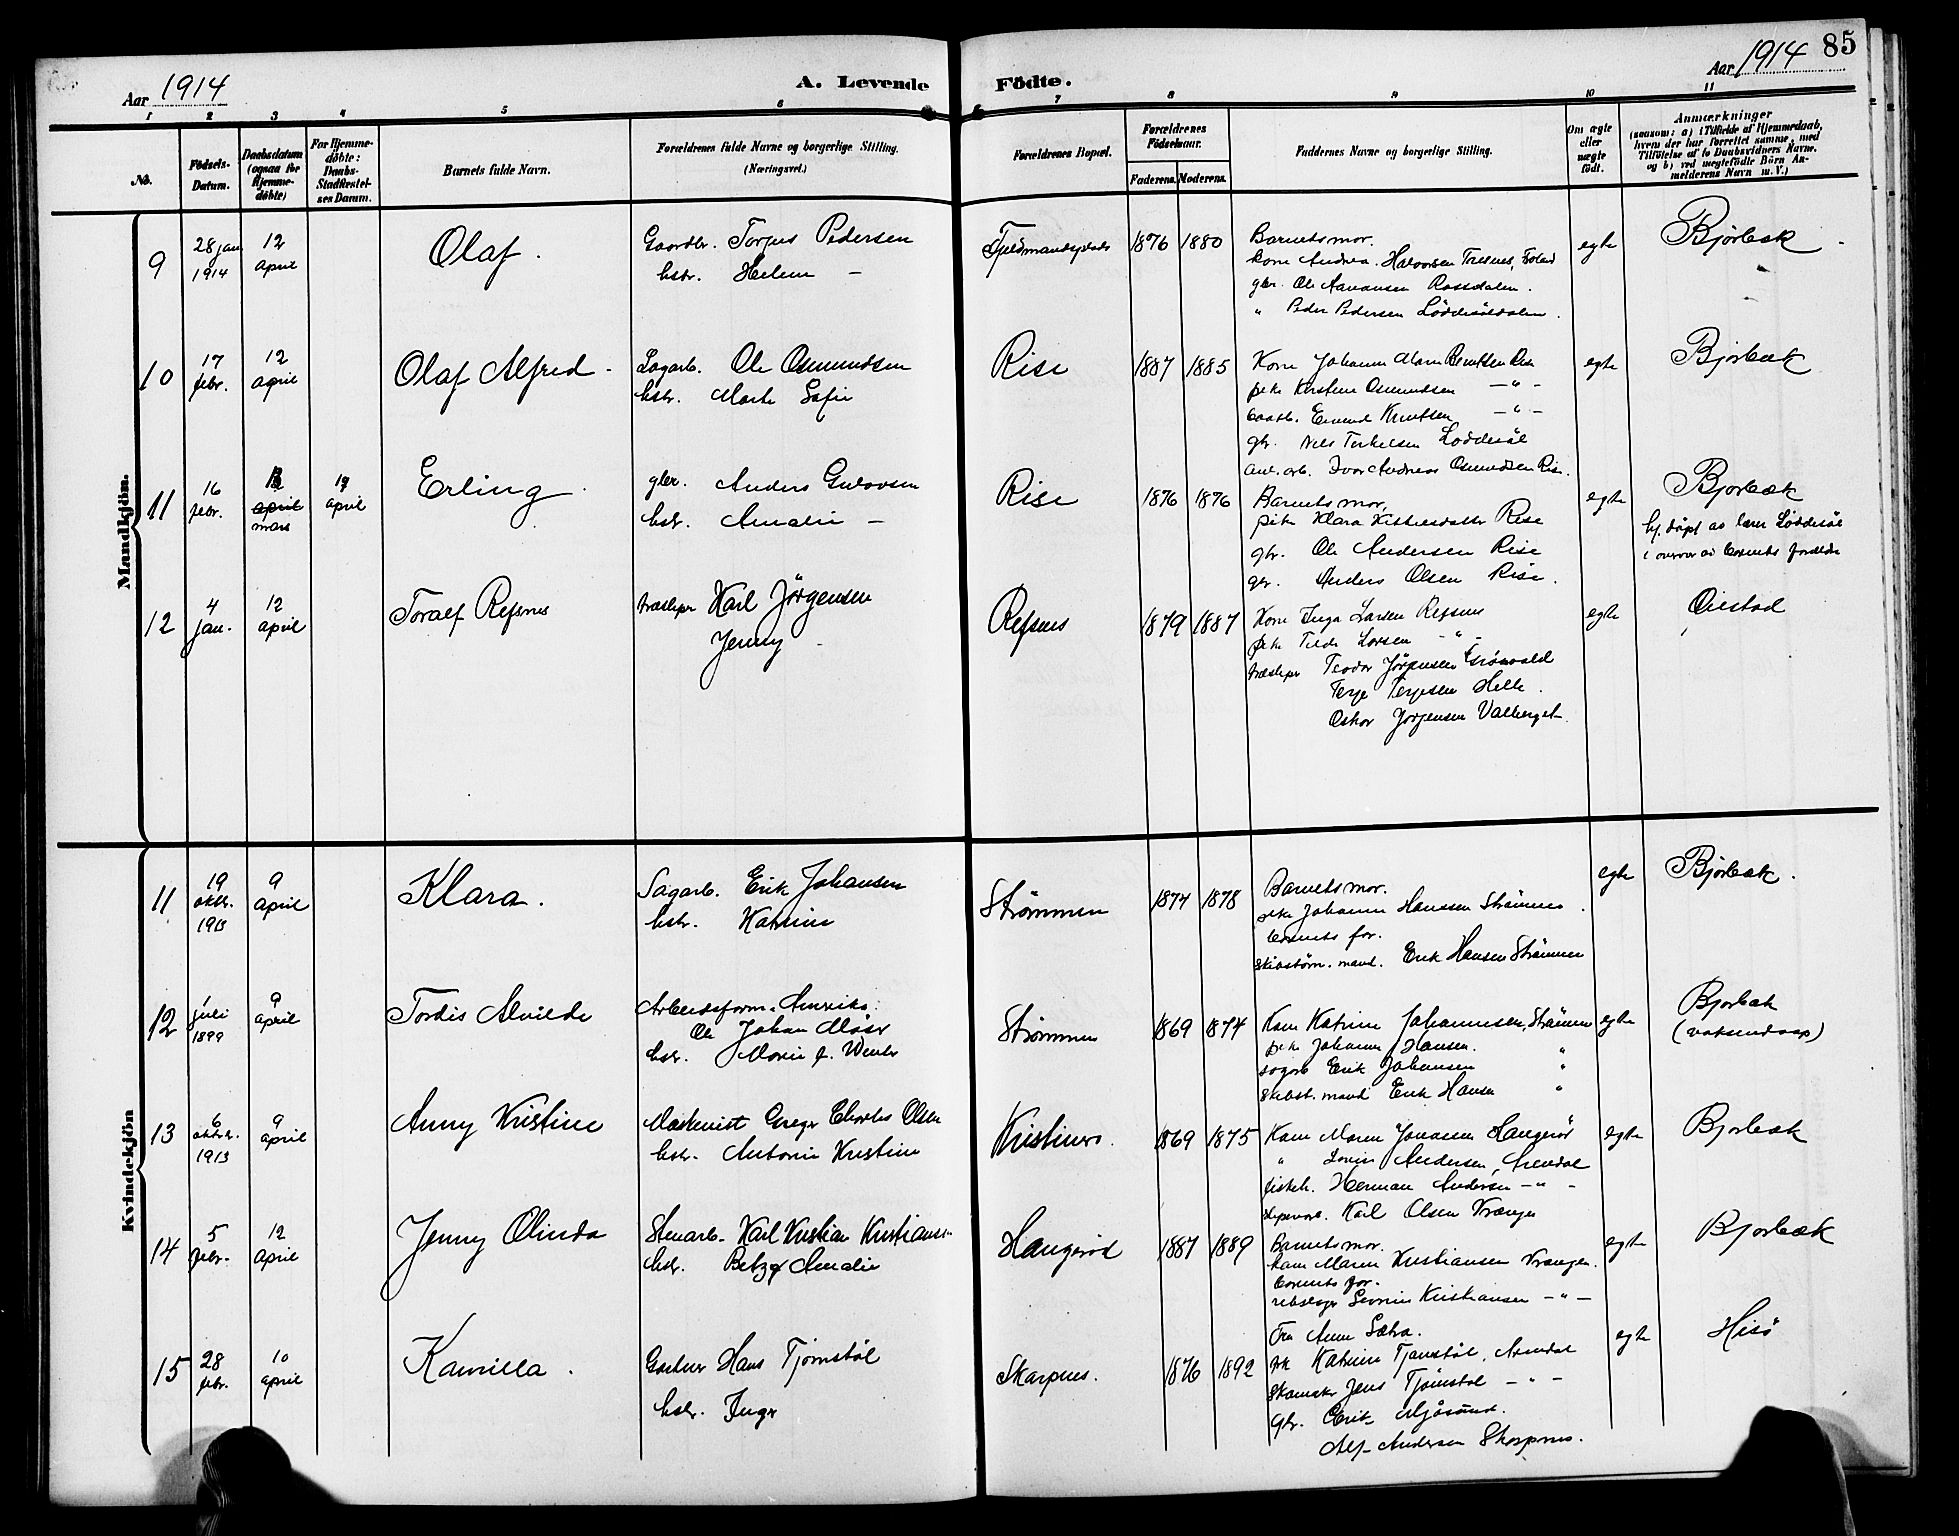 Aar 1914
A. Levende
Födte.
Aar 1914 85
1 2 3 4 5 6 6 7 8 9 10 11
No.
Födsels-
Datum.
Daabsdatum
(ogsaa for
Hjemme-
döbte)
For Hjemme-
döbte:
Daabs-
Stadfæstel-
ses Datum.
Barnets fulde Navn.
Forældrenes fulde Navne og borgerlige Stilling.
(Næringsvei.)
Forældrenes Bopæl.
Forældrenes
Födselsaar.
Faderens. Moderens.
Faddernes Navne og borgerlige Stilling.
Om ægte
eller
uægte
födt.
Anmærkninger
(saasom: a) i Tilfælde af Hjemmedaab,
hvem der har forrettet samme, med
Tilföielse af to Daabsvidners Navne,
og b) ved uegtefödte Börn An-
melderens Navn m. V.)
Mandkjön.
9
28 jan.
1914
12
april
Olaf.
Gaardbr. Torjus Pedersen
hstr. Helene —
1876 1880
Barnets mor.
kone Andrea Halvorsen
gbr. Ole Aanonsen Rossdalen.
" Peder Pedersen Löddesöldalen.
egte
Bjorbæk
10
17
febr.
12
april
Olaf Alfred
Sagarb. Ole Osmundsen
hstr. Marte Sofie
Rise
1887 1885
Kone Johanne Marie Berntsen Rise
pike Kirstine Osmundsen — " —
Eivind Knutsen — " —
gbr. Nils Terkelsen Loddesöl
anl. arb. Ivar Andreas Osmundsen Rise.
egte
Bjorbæk
11
16
febr.
april
mars
april
Erling
gbr. Anders Gulovsen
hstr. Amalie —
Rise
1876 1876
Barnets mor,
pike Klara Rise
gbr. Ole Andersen Rise
gbr. Anders Olsen Rise.
egte
Bjorbæk
hj. döpt av lærer Löddesöl
i overvær av barnets forældre
12
4
jan.
12
april
Toralf Refsnes
træsliper Karl Jörgensen
Jenny —
Refsnes
1879 1887
Kone Inga Larsen Refsnes
pike Tilda Larsen — " —
træsliper Teodor Jörgensen
Terje Terjesen Helle.
Oskar Jörgensen Valberget
egte
Öiestad
Kvindekjön
11
19
oktbr.
1913
9
april
Klara.
Sagarb. Erik Johansen
hstr. Katrine
Strömmen
1874 1878
Barnets mor.
pike Johanne Hansen Strömmen.
barnets far.
skibstöm. mand. Erik Hansen Strömmen
egte
Bjorbæk.
12
1
juli
1899
9
april
Tordis Alvilde
Arbeidsform. Amerika.
Ole Johan Moser
hstr. Marie f.
Strømmen
1869 1874
Kone Katrine Johannesen, Strömmen
pike Johanne Hansen. "
sagarb. Erik Johansen "
Skibst. mand Erik Hansen "
egte
Bjorbæk
(voksendaap)
13
6
oktbr.
1913
9
april
Anny Kristine
Maskinist Greger Charles Olsen
hstr. Antonie Kristine
Kristiners.
1869 1875
Kone Maren Jonassen Haugeröd
" Lovise Andersen, Arendal
fiskeh. Herman Andersen — " —
Karl Olsen Vrængen
egte
Bjorbæk
14
5
febr.
12
april
Jenny Olinda
Stenarb. Karl Kristian Kristiansen
hstr. Betzy Amalie
Haugeröd
1887 1889
Barnets mor.
kone Maren Kristiansen Vrængen.
barnets far.
rebslager Severin Kristiansen — " —
egte
Bjorbæk
15
28
febr.
10
april
Kamilla.
Gartner Hans Tjomstöl
hstr. Inger
Skarpnes.
1876 1892
Fru Anne Sætra.
pike Katrine Tjomstöl, Arendal
Skomaker Jens Tjomstöl — " —
gbr. Erik Mjåsund.
Alf Andersen Skarpnes.
egte
Hisö